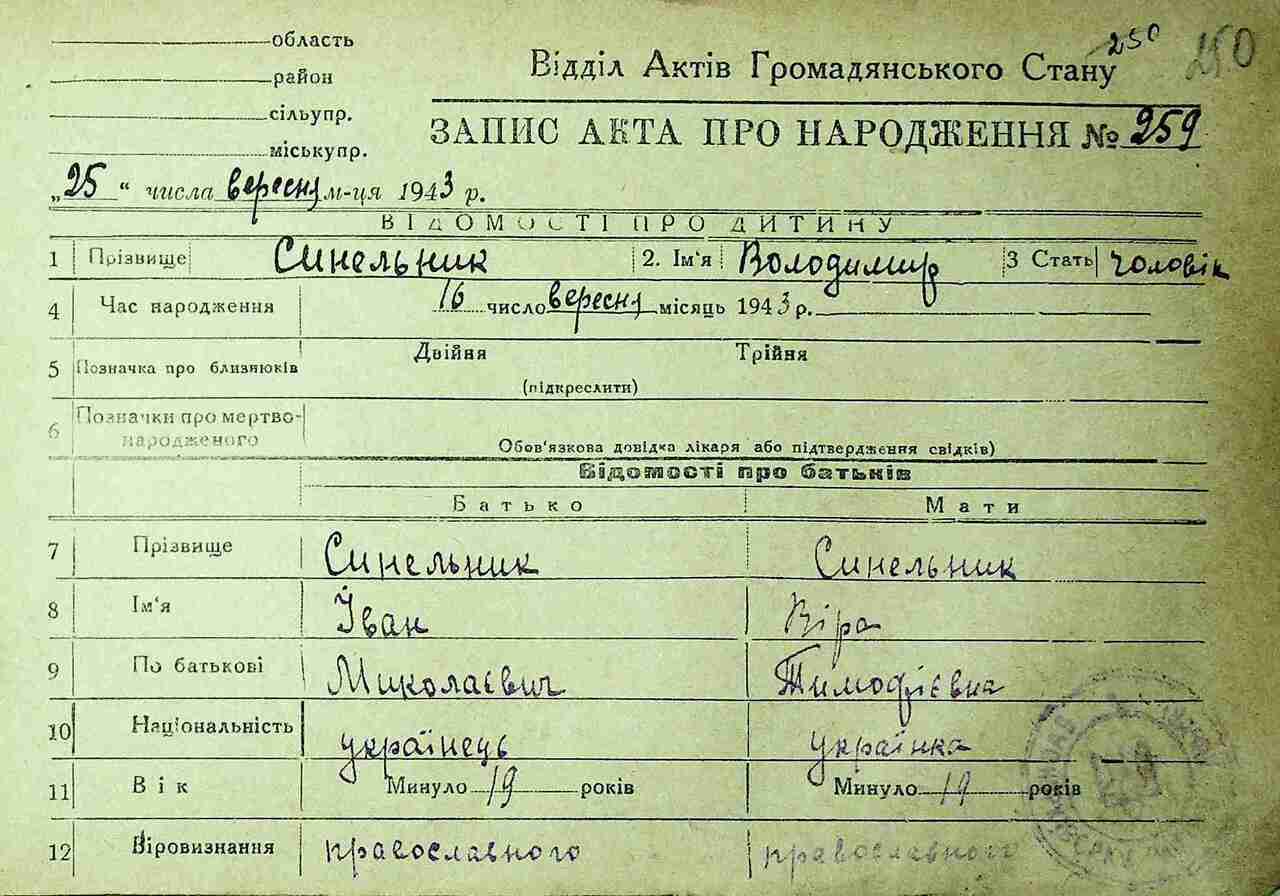 область
район
сільупр.
міськупр.
250
250
Відділ Актів Громадянського Стану
ЗАПИС АКТА ПРО НАРОДЖЕННЯ № 259
„25“ числа вересня м-ця 1943 р.
ВІДОМОСТІ ПРО ДИТИНУ
1 Прізвище Синельник 2. Ім'я Володимир 3 Стать чоловік
4 Час народження 16 число вересня місяць 1943 р.
5 Позначка про близнюків Двійня Трійня
(підкреслити)
6 Позначки про мертво-
народженого
Обов'язкова довідка лікаря або підтвердження свідків)
Відомості про батьків
Батько Мати
7 Прізвище Синельник Синельник
8 Ім'я Іван Віра
9 По батькові Миколаєвич Тимофієвна
10 Національність українець українка
11 Вік Минуло 19 років Минуло 19 років
12 Віровизнання православного православного